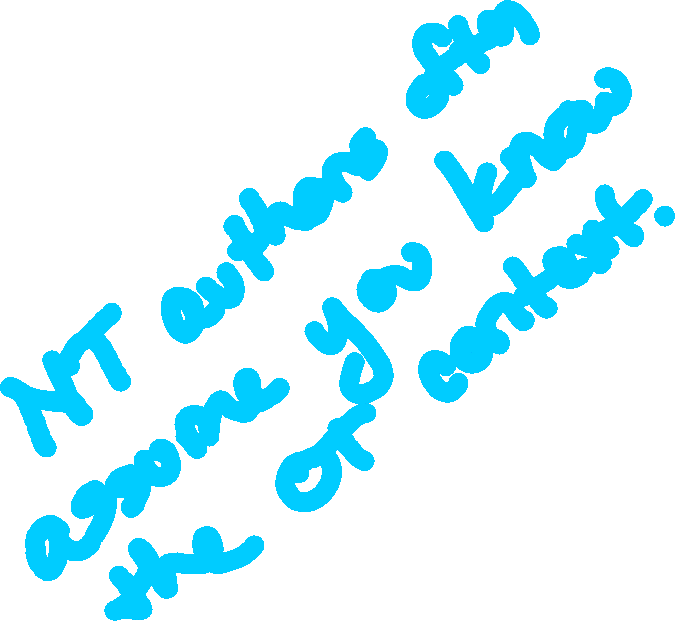 NT authors often
assume you know
the OT context.